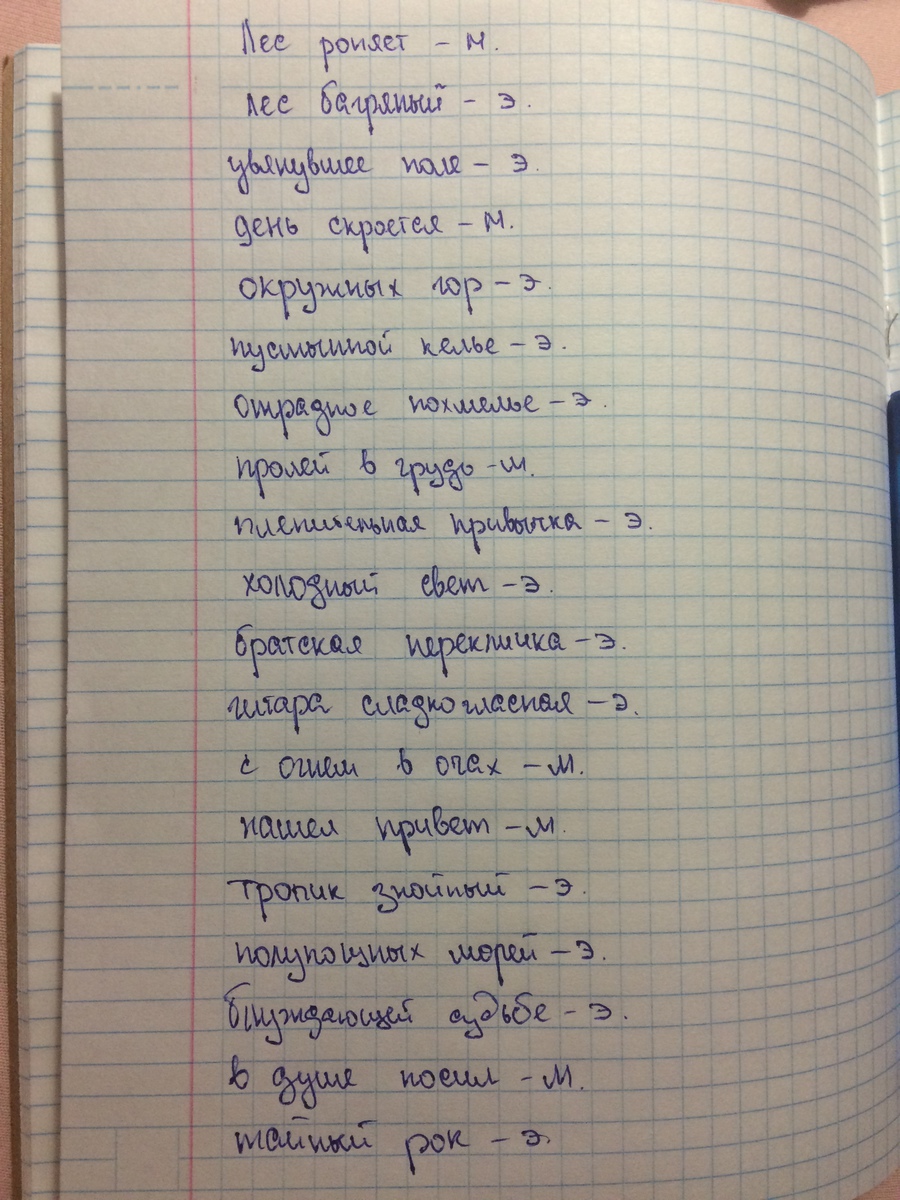 Лес роняет - М.
лес багряный - Э.
увянувшее поле - Э.
день скроется - М.
окружных гор - Э.
пустынной келье - Э.
отрадное похмелье - Э.
пролей в грудь - М.
пленительная привычка - Э.
холодный свет - Э.
братская перекличка - Э.
гитара сладкогласная - Э.
с огнем в очах - М.
нашел привет - М.
тропик знойный - Э.
полунощных морей - Э.
блуждающей судьбе - Э.
в душе носил - М.
тайный рок - Э.